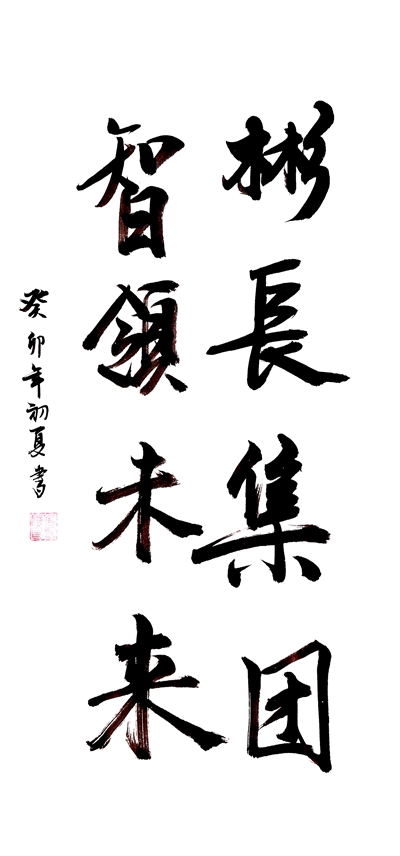 彬長集团
智領未来
癸卯年初夏書